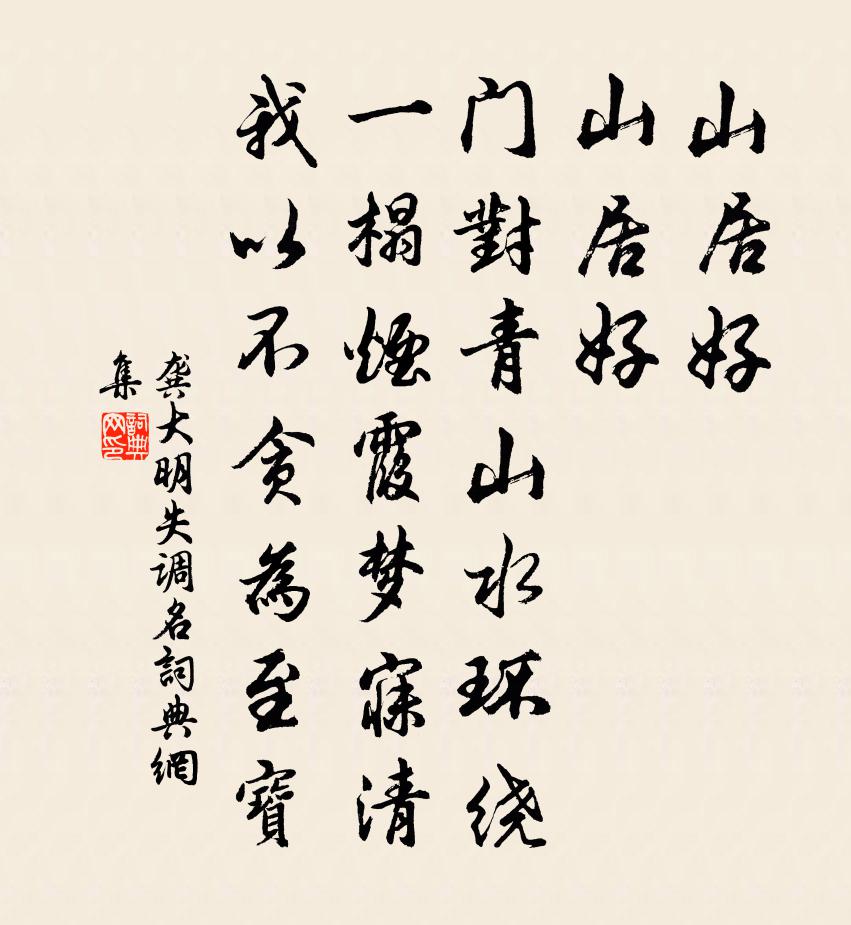 山居好
山居好
门對青山水环绕
一榻煙霞梦寐清
我以不贪為至寶
龚大明失调名詞典網
集
詞典网印